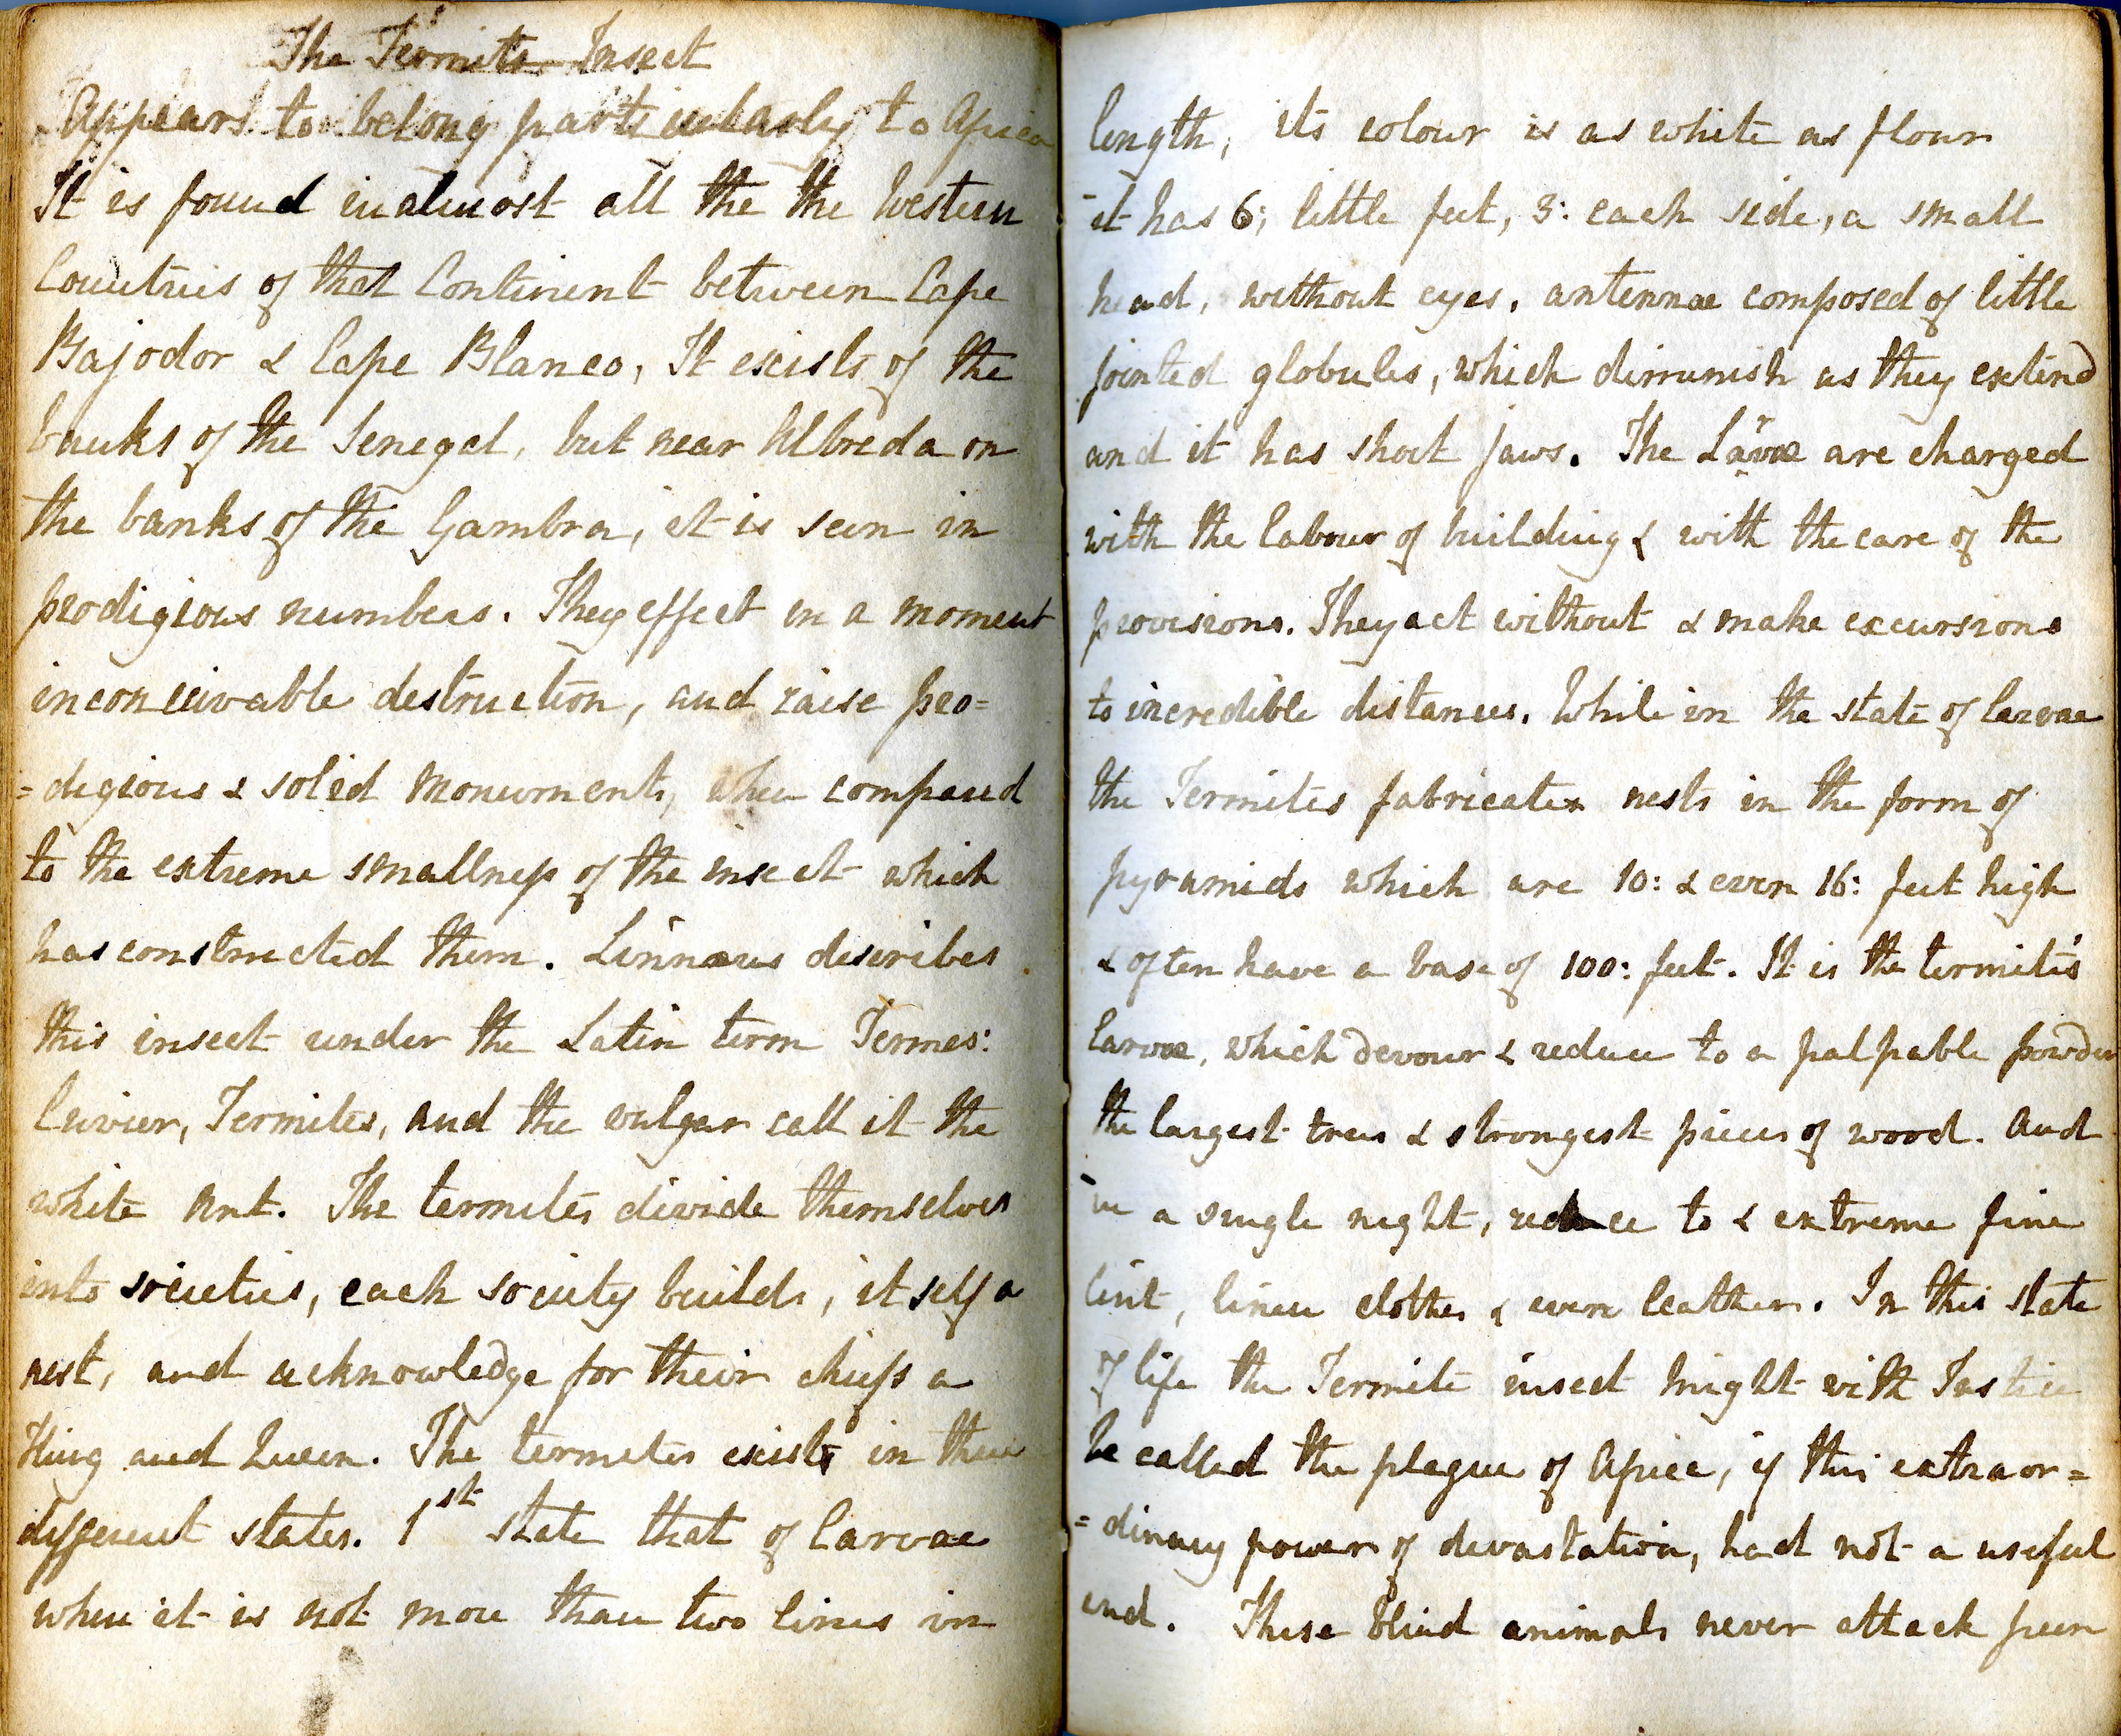 The Termite Insect
Appears to belong particularly to Africa
It is found in almost all the the Western
Countries of that Continent between Cape
Bajodor & Cape Blanco, It exists of the
banks of the Senegal, but near Albreda on
the banks of the Gambra, it is seen in
prodigious numbers. They effect in a moment
inconceivable destruction, and raise pro=
=digious & solid Monuments, when compared
to the extreme smallness of the insect which
has constructed them. Linnæus describes
this insect under the Latin term Termes:
Cuvier, Termites, and the vulgar call it the
white Ant. The termites divide themselves
into societies, each society builds, itself a
nest, and acknowledge for their chiefs a
King and Queen. The termites exists in three
different states. 1st state that of larvae
when it is not more than two lines in
length, its colour is as white as flour
it has 6; little feet, 3: each side, a small
head, without eyes, antennae composed of little
jointed globules, which dimunish as they extend
and it has short jaws. The Larvæ are charged
with the labour of building & with the care of the
provisions. They act without & make excursions
to incredible distances. While in the state of larvae
the Termites fabricates nests in the form of
pyramids which are 10: & even 16: feet high
& often have a base of 100: feet. It is the termite's
larvæ, which devour & reduce to a palpable powder
the largest trees & strongest pieces of wood. And
in a single night, reduce to & extreme fine
lint, linen clothes & even leather. In this state
of life the Termite insect might with Justice
be called the plague of Africa, if this extraor=
=dinary power of devastation, had not a useful
end. These blind animals never attack green